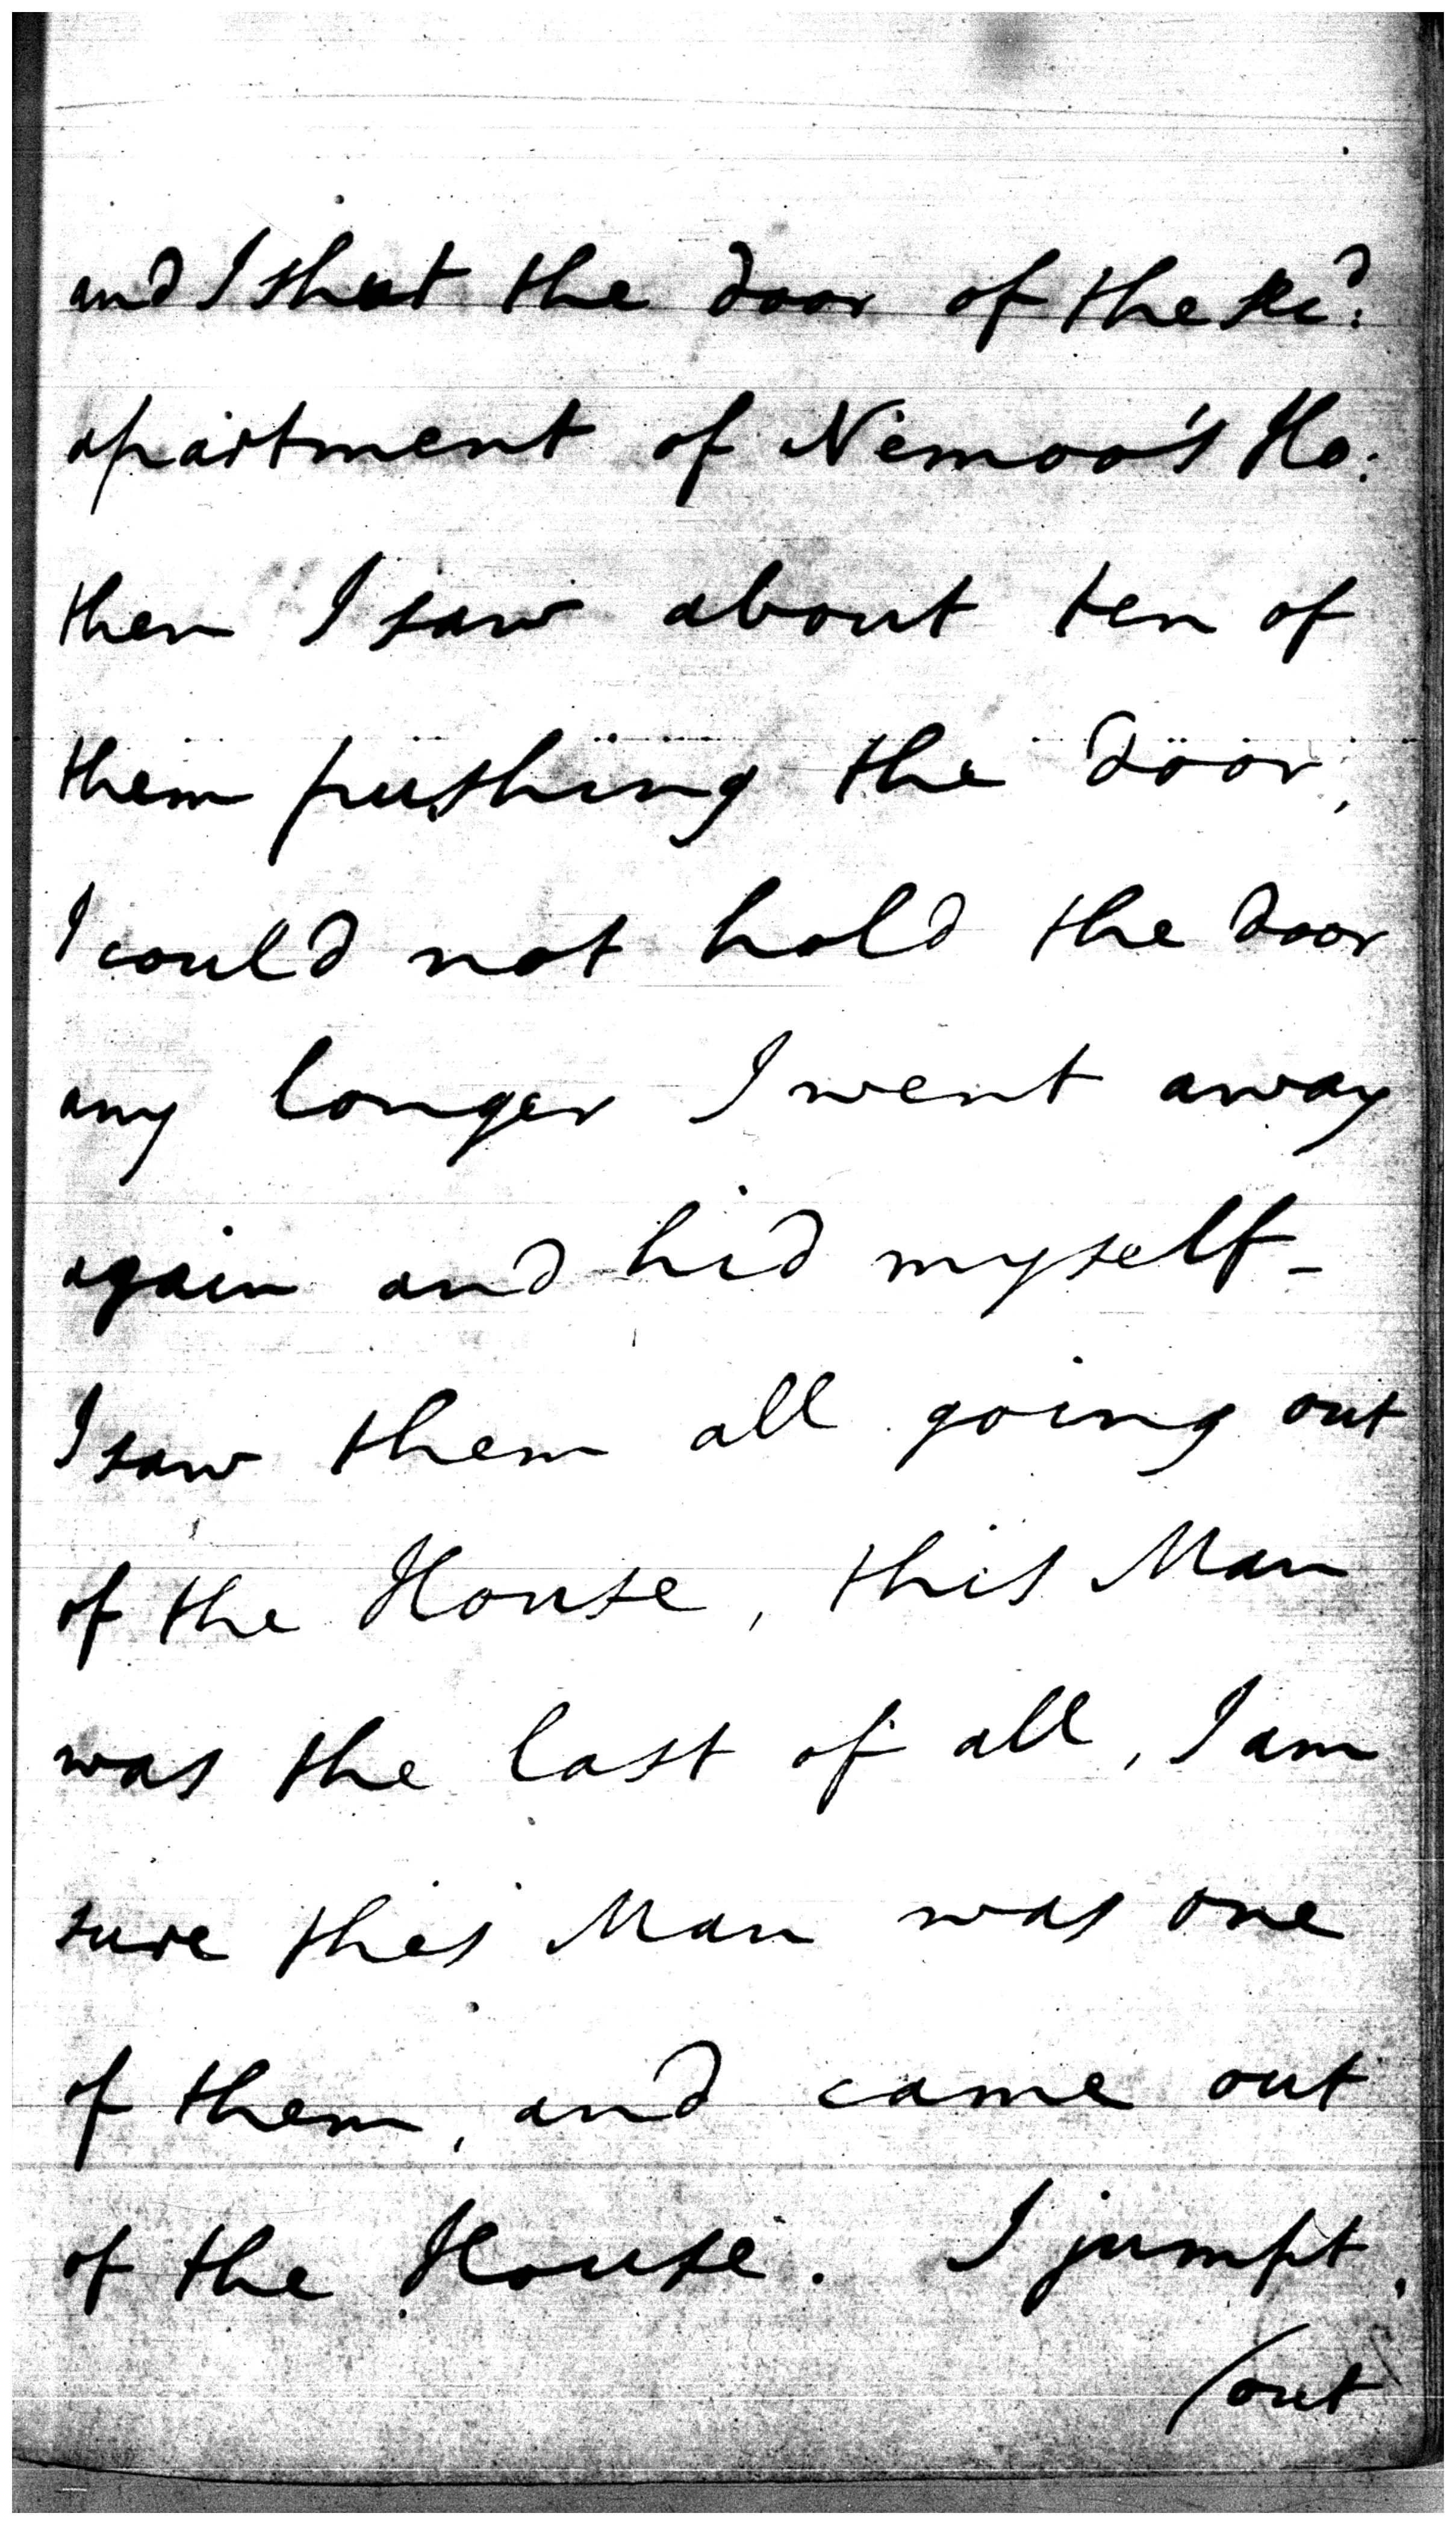 and I shut the door of the
apartment of Nemoo's Ho:
then I saw about ten of
them pushing the door,
I could not hold the door
any longer I went away
again and hid myself_
I saw them all going out
of the House, this Man
was the last of all, I am
sure this Man was one
of them, and came out
of the House. I jumpt,
(out